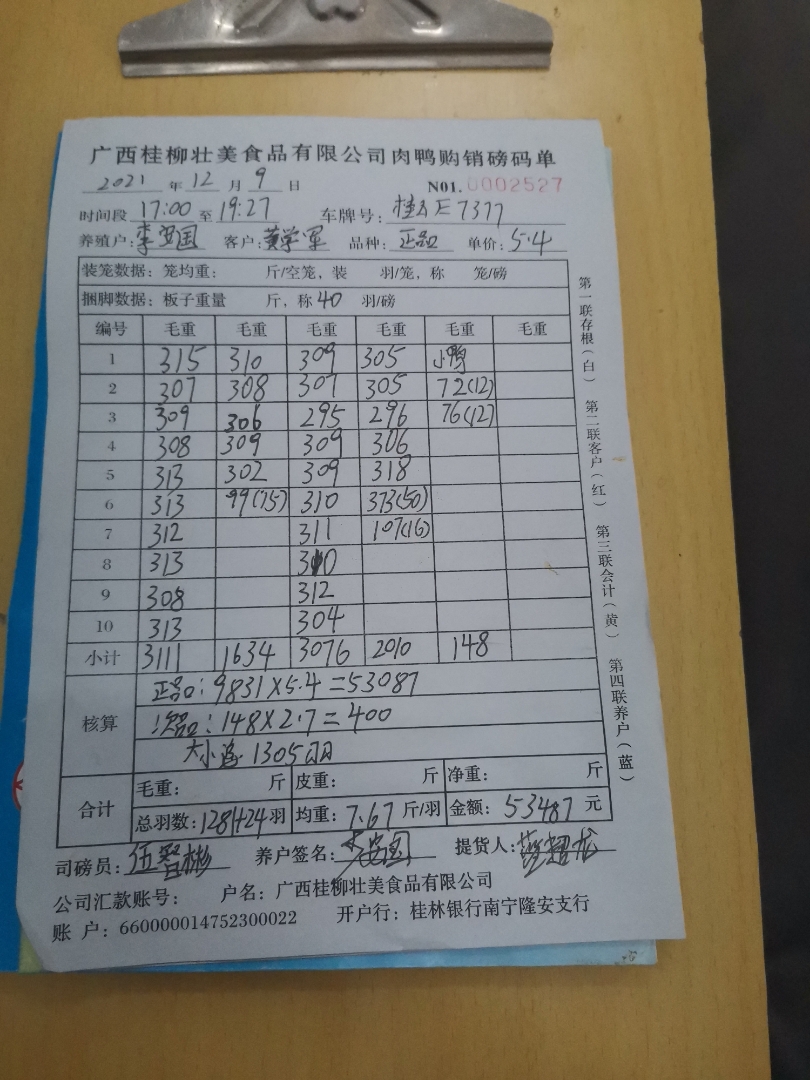 广西桂柳壮美食品有限公司肉鸭购销磅码单
2021 年 12 月 9 日 N01. 0002527
时间段 17:00 至 19:27 车牌号: 桂 E7377
养殖户: 李 国 客户: 黄学军 品种: 正品 单价: 5.4
装笼数据: 笼均重: 斤/空笼, 装 羽/笼, 称 笼/磅
捆脚数据: 板子重量 斤, 称 40 羽/磅
编号 毛重 毛重 毛重 毛重 毛重 毛重
1 315 310 309 305 小鸭
2 307 308 307 305 72(12)
3 309 306 295 296 76(12)
4 308 309 309 306
5 313 302 309 318
6 313 99(15) 310 373(50)
7 312 311 107(16)
8 313 310
9 308 312
10 313 304
小计 3111 1634 3076 2010 148
核算
正品: 9831×5.4=53087
次品: 148×2.7=400
大小 1305羽
合计
毛重: 斤 皮重: 斤 净重: 斤
总羽数: 1281+24 羽 均重: 7.67 斤/羽 金额: 53487 元
司磅员: 伍智彬 养户签名: 李 国 提货人:
公司汇款账号: 户名: 广西桂柳壮美食品有限公司
账 户: 660000014752300022 开户行: 桂林银行南宁隆安支行
第一联存根(白) 第二联客户(红) 第三联会计(黄) 第四联养户(蓝)